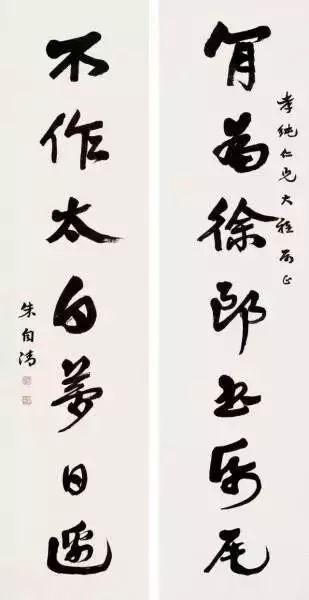 肎為徐郎書帋尾
孝純仁兄大雅屬正
不作太白夢日邊
朱自清